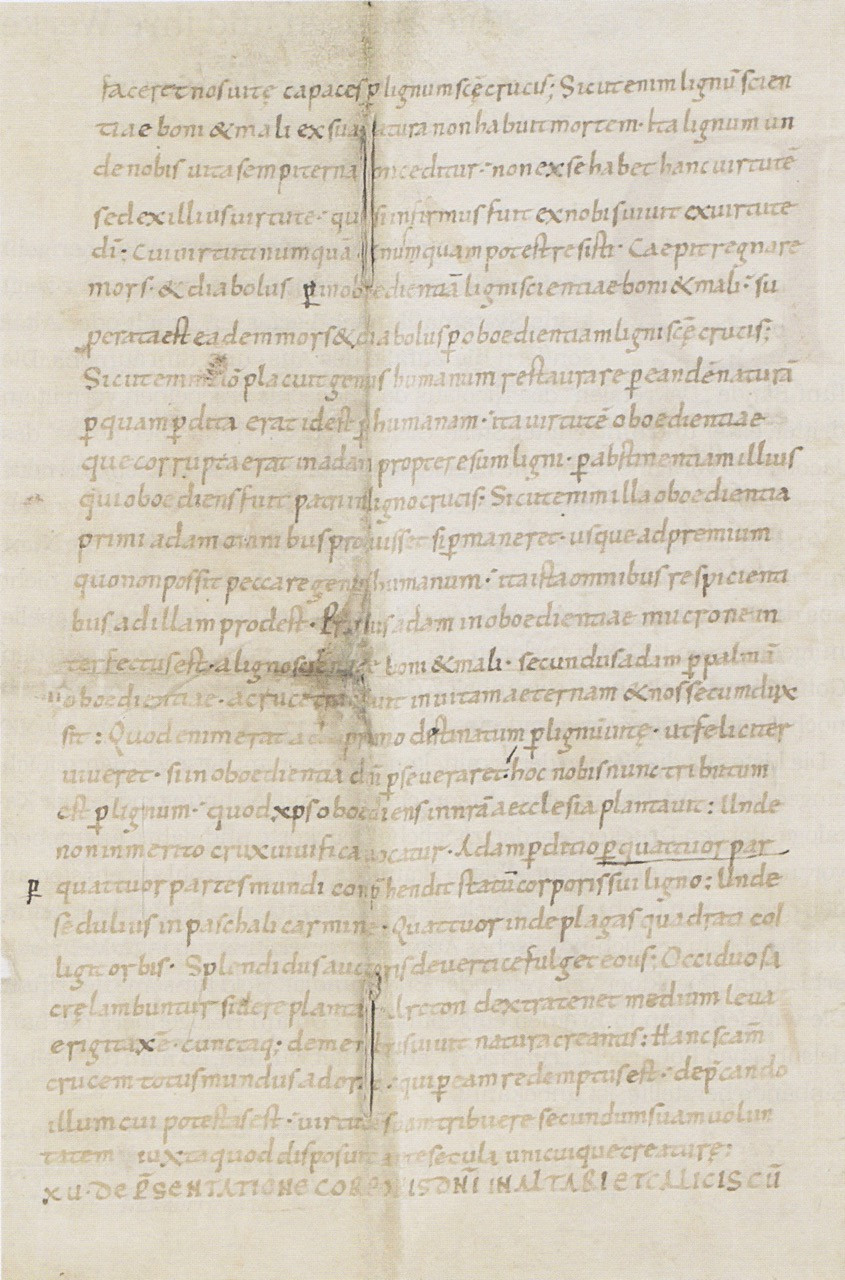 faceret nos uitę capaces p̱ lignum scę̄ crucis; Sicut enim lignū scien
tiae boni & mali ex sua natura non habuit mortem· Ita lignum un
de nobis uita sempiterna conceditur· non ex se habet hanc uirtutē
sed ex illius uirtute· qui si infirmus fuit ex nobis uiuit ex uirtute
dī· Cui uirtuti numquā numquam potest resisti· Caepit regnare
mors· & diabolus p̱ inobedientiā ligni scientiae boni & mali· su
perata est eadem mors & diabolus p̱ oboedientiam ligni scę̄ crucis;
Sicut enim dō placuit genus humanum restaurare p̱ eandē naturā
p̱ quam p̱dita erat id est p̱ humanam· ita uirtutē oboedientiae
que corrupta erat in adam propter esum ligni· p̱ abstinentiam illius
qui oboediens fuit patri in ligno crucis· Sicut enim illa oboedientia
primi adam omnibus profuisset si p̱maneret· usque ad premium
quo non possit peccare genus humanum· ita ista omnibus respicienti
bus ad illam prodest· Prius adam inoboedientiae mucrone in
terfectus est· a ligno scientiae boni & mali· secundus adam p̱ palmā
oboedientiae· a cruce transiuit in uitam aeternam & nos secum dux
sit: Quod enim erat a primo destinatum p̱ lignū uitę· ut feliciter
uiueret· si in oboedientia dī p̱seueraret· hoc nobis nunc tributum
est p̱ lignum· quod xp̄s oboediens in nr̄a aecclesia plantauit: Unde
non inmerito crux uiuifica uocatur· Adam p̱ditio p̱ quattuor par
p̱ quattuor partes mundi conp̄hendit statū corporis sui ligno: Unde
sedulius in paschali carmine· Quattuor inde plagas quadrati col
ligit orbis· Splendidus auctoris de uertice fulget eous· Occiduo sa
crę lambuntur sidere plantae Arcton dextra tenet medium leua
erigit axē· cunctaq; de membris uiuit natura creantis: Hanc scam̄
crucem totus mundus adorat· qui p̱ eam redemptus est· dep̄cando
illum cui potestas est· uirtutes bam tribuere secundum suam uolun
tatem iuxta quod disposuit ante secula unicuique creaturę:
XU· DE P̄SENTATIONE CORPORIS DN̄I IN ALTARI ET CALICIS CŪ